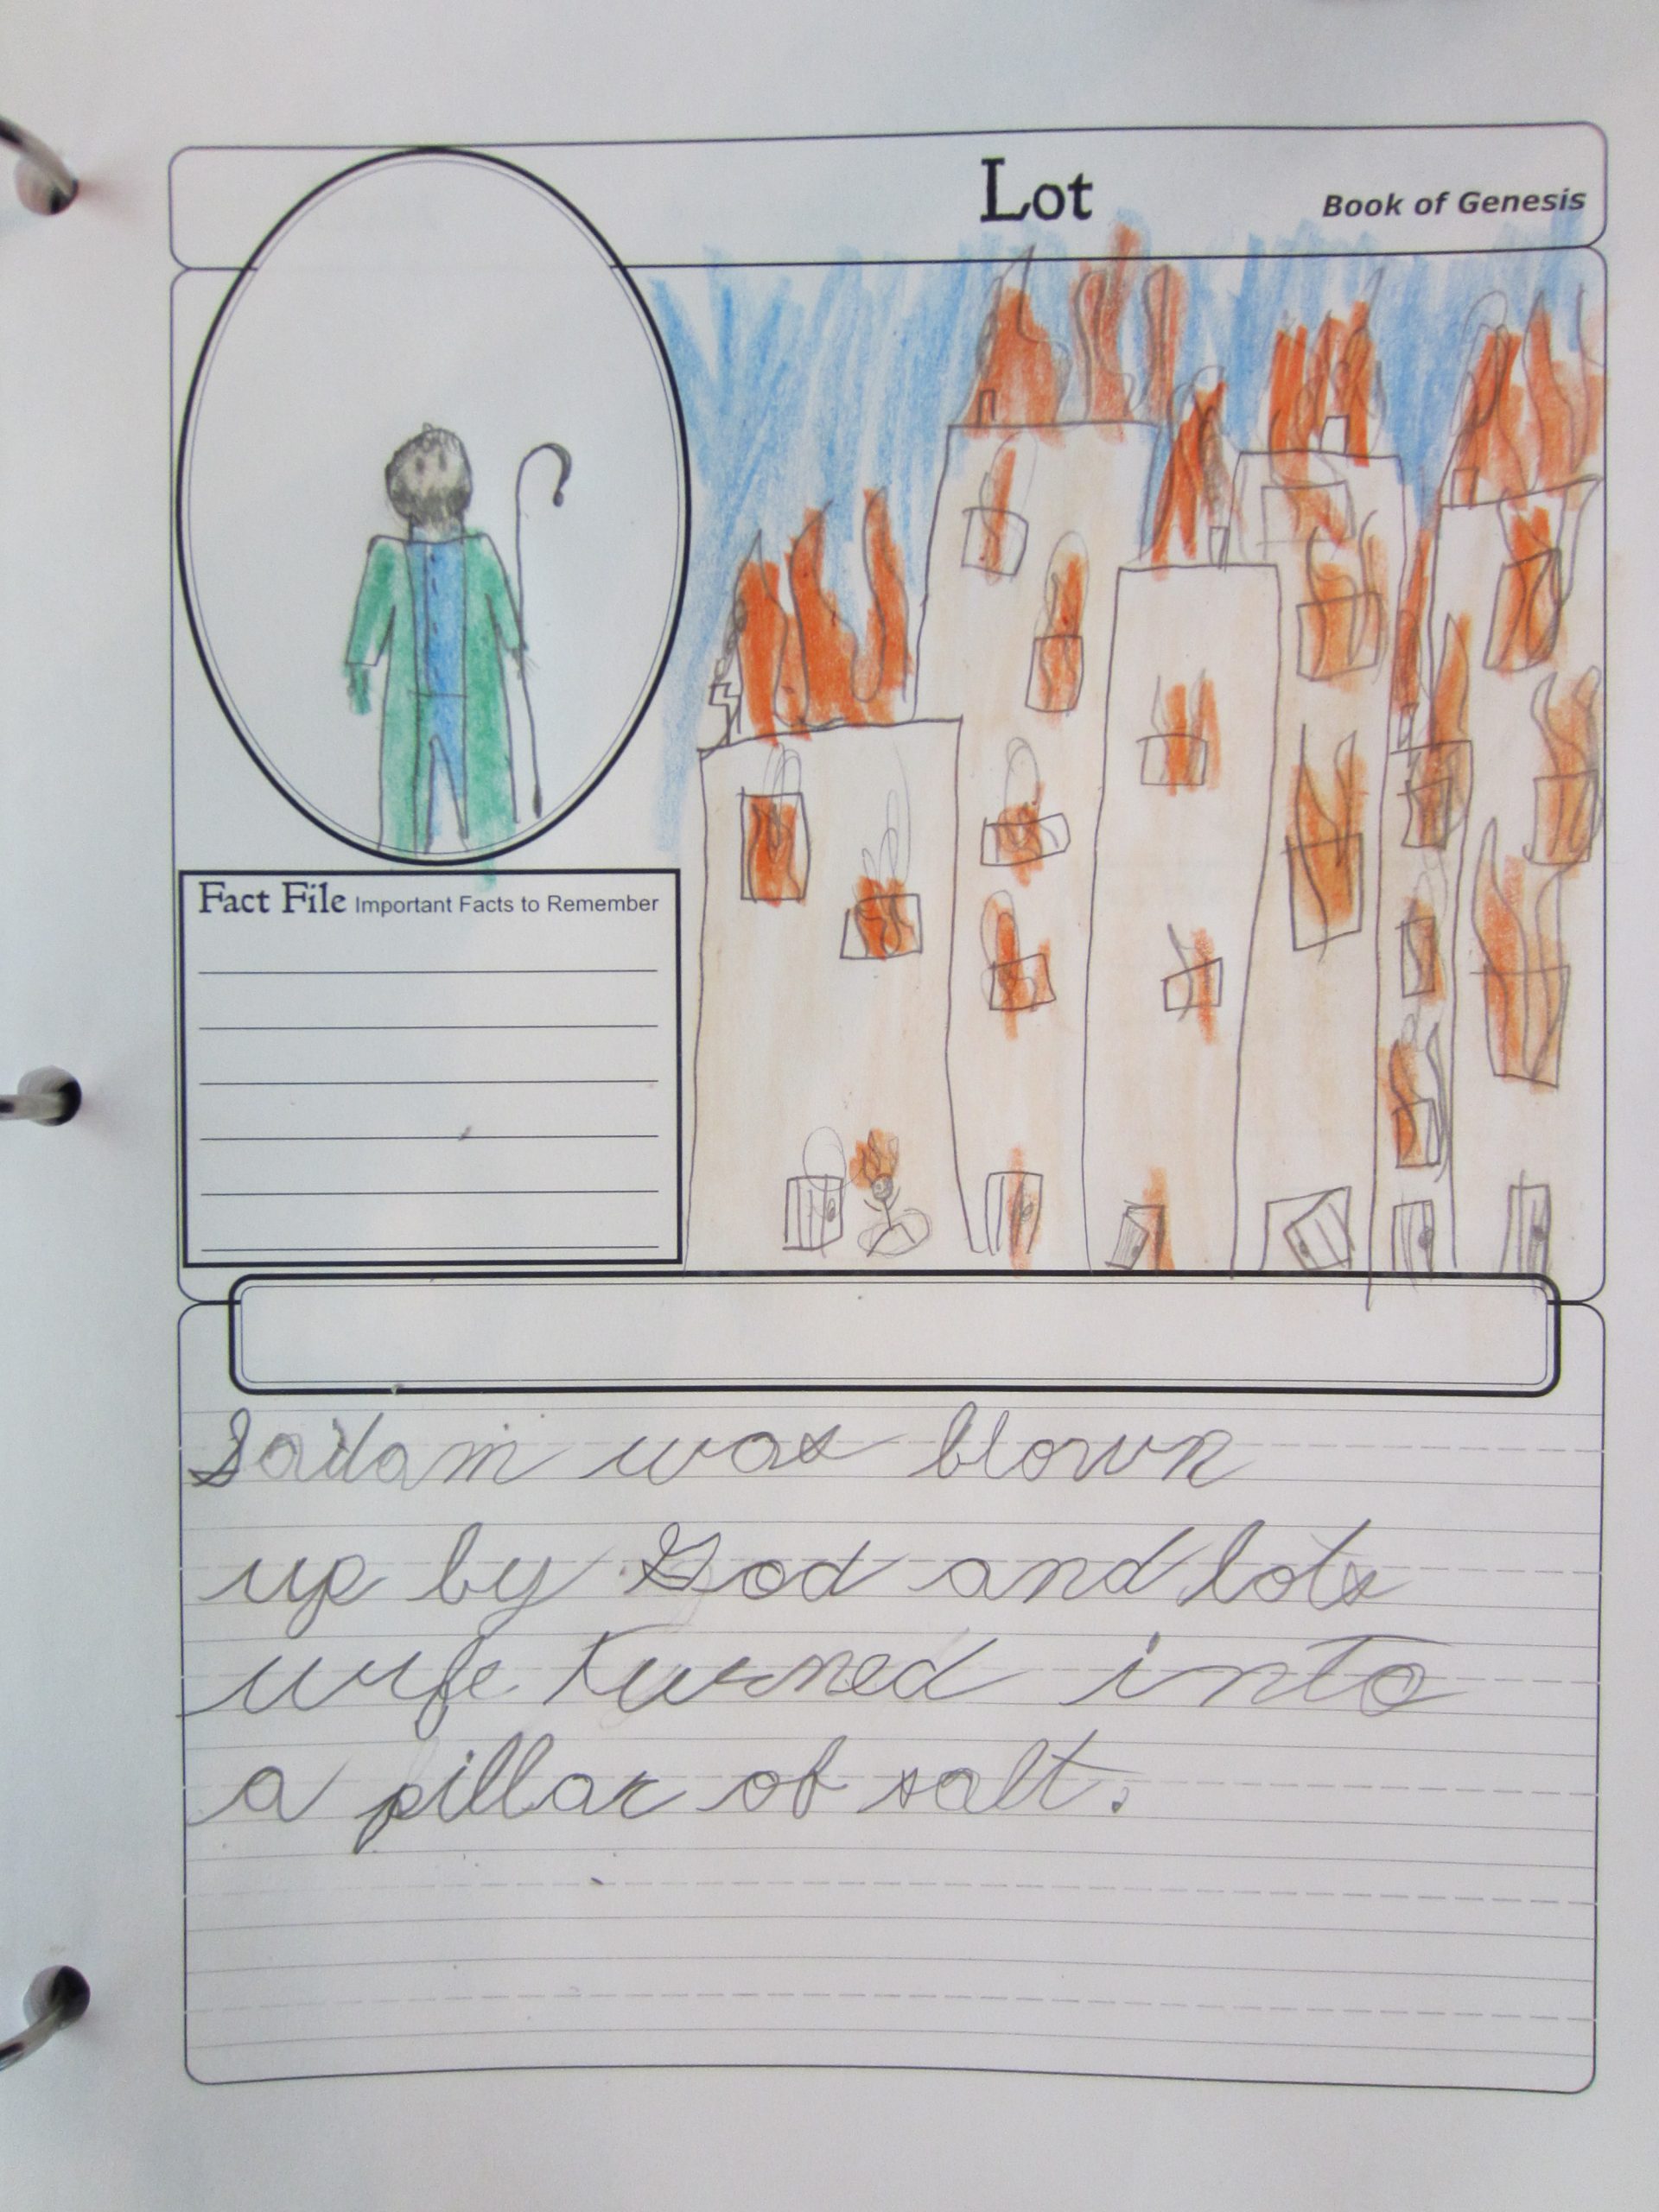 Lot
Book of Genesis
Fact File Important Facts to Remember
Saidam was blown
up by God and lots
wife turned into
a pillar of salt.